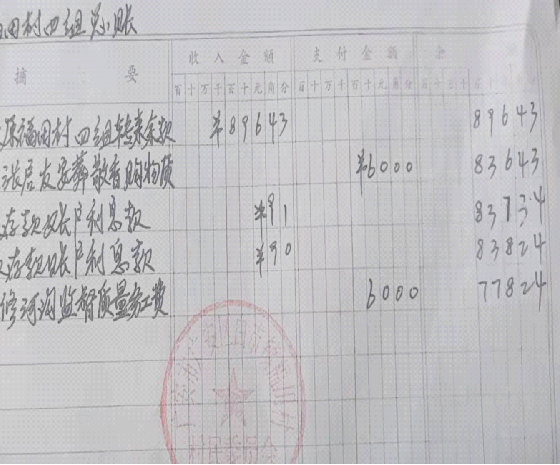 田村四组总账
摘 要 收入金额 支付金额 余
百十万千百十元角分 百十万千百十元角分 百十万千百十元角分
原福田村四组转来余款 ¥89643 89643
张居友安葬散香购物质 ¥6000 83643
存款账户利息款 ¥91 83734
存款账户利息款 ¥90 83824
修河沟监督质量务工费 6000 77824
村民委员会